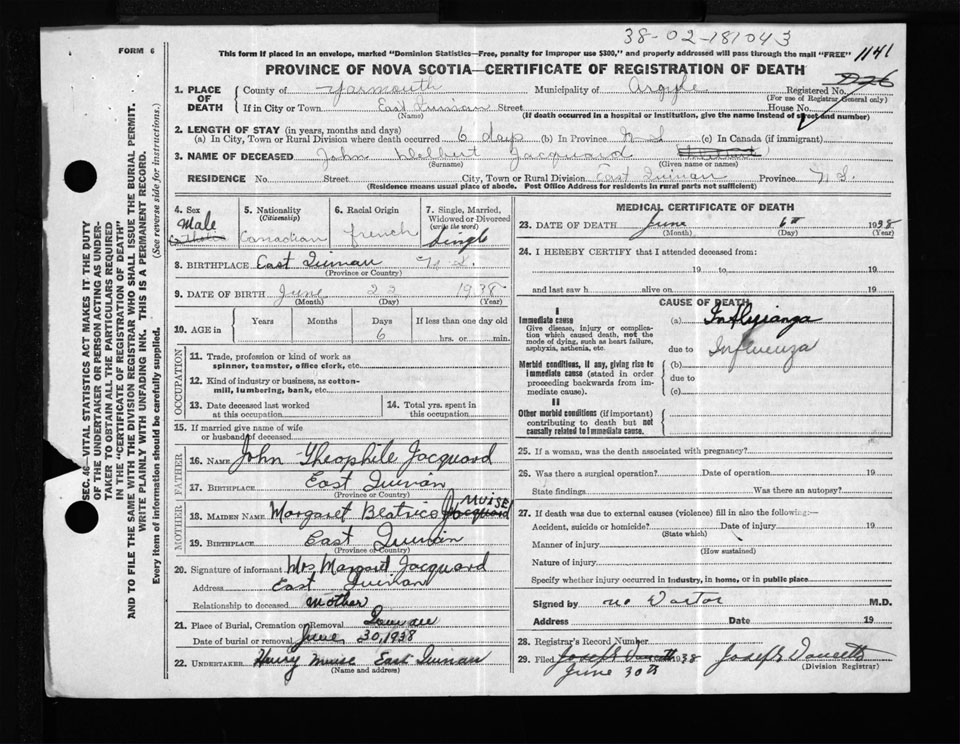 38-02-181043
FORM 6
This form if placed in an envelope, marked "Dominion Statistics—Free, penalty for improper use $300," and properly addressed will pass through the mail "FREE"
1141
PROVINCE OF NOVA SCOTIA—CERTIFICATE OF REGISTRATION OF DEATH
1. PLACE OF DEATH
County of Yarmouth Municipality of Argyle Registered No.
(For use of Registrar General only)
If in City or Town East Quinan Street House No.
(Name) (If death occurred in a hospital or institution, give the name instead of street and number)
2. LENGTH OF STAY (in years, months and days)
(a) In City, Town or Rural Division where death occurred 6 days (b) In Province N S (c) In Canada (if immigrant)
3. NAME OF DECEASED John Delbert Jacquard
(Surname) (Given name or names)
RESIDENCE No. Street City, Town or Rural Division East Quinan Province N. S.
(Residence means usual place of abode. Post Office Address for residents in rural parts not sufficient)
4. Sex Male
5. Nationality (Citizenship) Canadian
6. Racial Origin French
7. Single, Married, Widowed or Divorced (write the word) Single
8. BIRTHPLACE East Quinan N. S.
(Province or Country)
9. DATE OF BIRTH June 22 1938
(Month) (Day) (Year)
10. AGE in Years Months Days If less than one day old
6 hrs. or min.
OCCUPATION
11. Trade, profession or kind of work as spinner, teamster, office clerk, etc.
12. Kind of industry or business, as cotton-mill, lumbering, bank, etc.
13. Date deceased last worked at this occupation
14. Total yrs. spent in this occupation
15. If married give name of wife or husband of deceased
FATHER
16. NAME John Theophile Jacquard
17. BIRTHPLACE East Quinan
(Province or Country)
MOTHER
18. MAIDEN NAME Margaret Beatrice Jacquard MUISE
19. BIRTHPLACE East Quinan
(Province or Country)
20. Signature of informant Mrs Margaret Jacquard
Address East Quinan
Relationship to deceased mother
21. Place of Burial, Cremation or Removal Quinan
Date of burial or removal June, 30, 1938
22. UNDERTAKER Harry Muise East Quinan
(Name and address)
MEDICAL CERTIFICATE OF DEATH
23. DATE OF DEATH June 6th 1938
(Month) (Day) (Year)
24. I HEREBY CERTIFY that I attended deceased from:
19 to 19
and last saw h alive on 19
CAUSE OF DEATH
I
Immediate cause (a)
Give disease, injury or complication which caused death, not the mode of dying, such as heart failure, asphyxia, asthenia, etc.
due to Influenza
Morbid conditions, if any, giving rise to immediate cause (stated in order proceeding backwards from immediate cause).
(b)
due to
(c)
II
Other morbid conditions (if important) contributing to death but not causally related to immediate cause.
25. If a woman, was the death associated with pregnancy?
26. Was there a surgical operation? Date of operation 19
State findings Was there an autopsy?
27. If death was due to external causes (violence) fill in also the following:—
Accident, suicide or homicide? Date of injury 19
(State which)
Manner of injury
(How sustained)
Nature of injury
Specify whether injury occurred in industry, in home, or in public place
Signed by no Doctor M.D.
Address Date 19
28. Registrar's Record Number
29. Filed Joseph Doucette 1938 Joseph Doucette
June 30th (Division Registrar)
SEC. 46—VITAL STATISTICS ACT MAKES IT THE DUTY
OF THE UNDERTAKER OR PERSON ACTING AS UNDER-
TAKER TO OBTAIN ALL THE PARTICULARS REQUIRED
IN THE "CERTIFICATE OF REGISTRATION OF DEATH"
AND TO FILE THE SAME WITH THE DIVISION REGISTRAR WHO SHALL ISSUE THE BURIAL PERMIT.
WRITE PLAINLY WITH UNFADING INK. THIS IS A PERMANENT RECORD.
Every item of information should be carefully supplied. (See reverse side for instructions.)